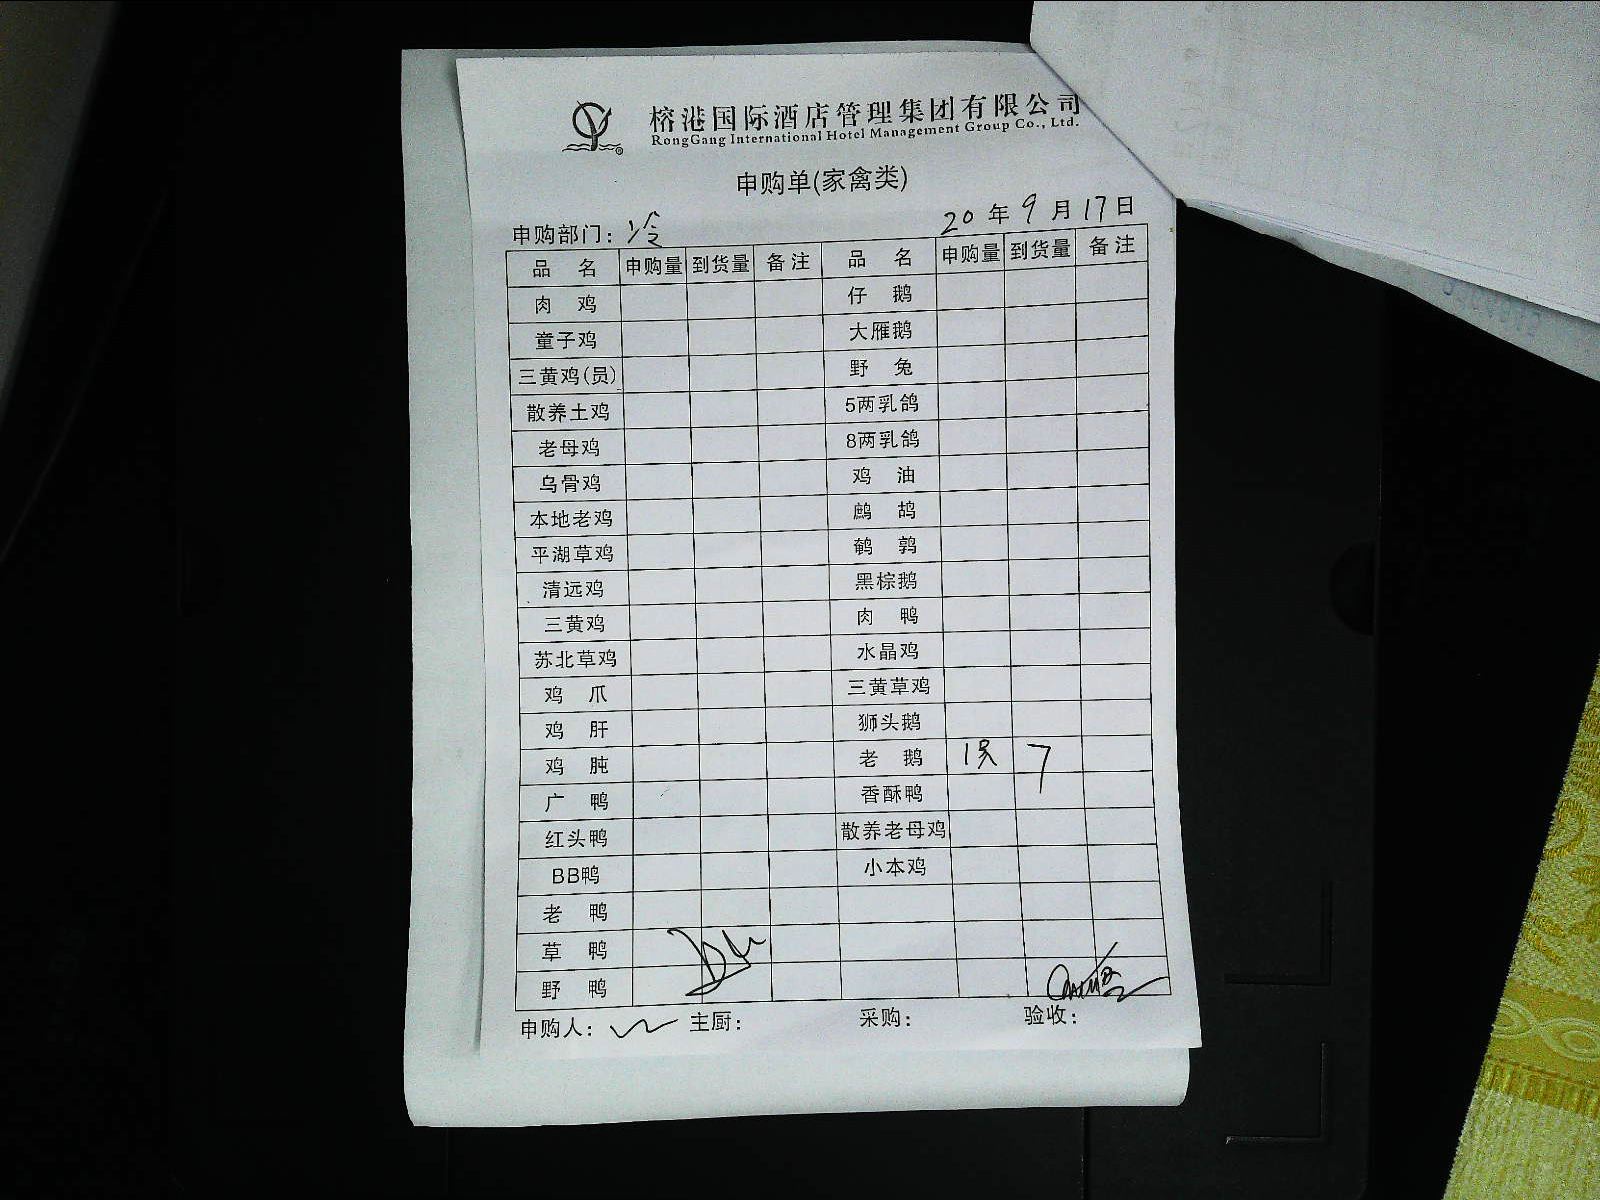 榕港国际酒店管理集团有限公司
RongGang International Hotel Management Group Co., Ltd.
申购单(家禽类)
申购部门：冷 20年9月17日
品名 申购量 到货量 备注 品名 申购量 到货量 备注
肉鸡 仔鹅
童子鸡 大雁鹅
三黄鸡(员) 野兔
散养土鸡 5两乳鸽
老母鸡 8两乳鸽
乌骨鸡 鸡油
本地老鸡 鹧鸪
平湖草鸡 鹌鹑
清远鸡 黑棕鹅
三黄鸡 肉鸭
苏北草鸡 水晶鸡
鸡爪 三黄草鸡
鸡肝 狮头鹅
鸡肫 老鹅 1只 7
广鸭 香酥鸭
红头鸭 散养老母鸡
BB鸭 小本鸡
老鸭
草鸭
野鸭
申购人： 主厨： 采购： 验收：